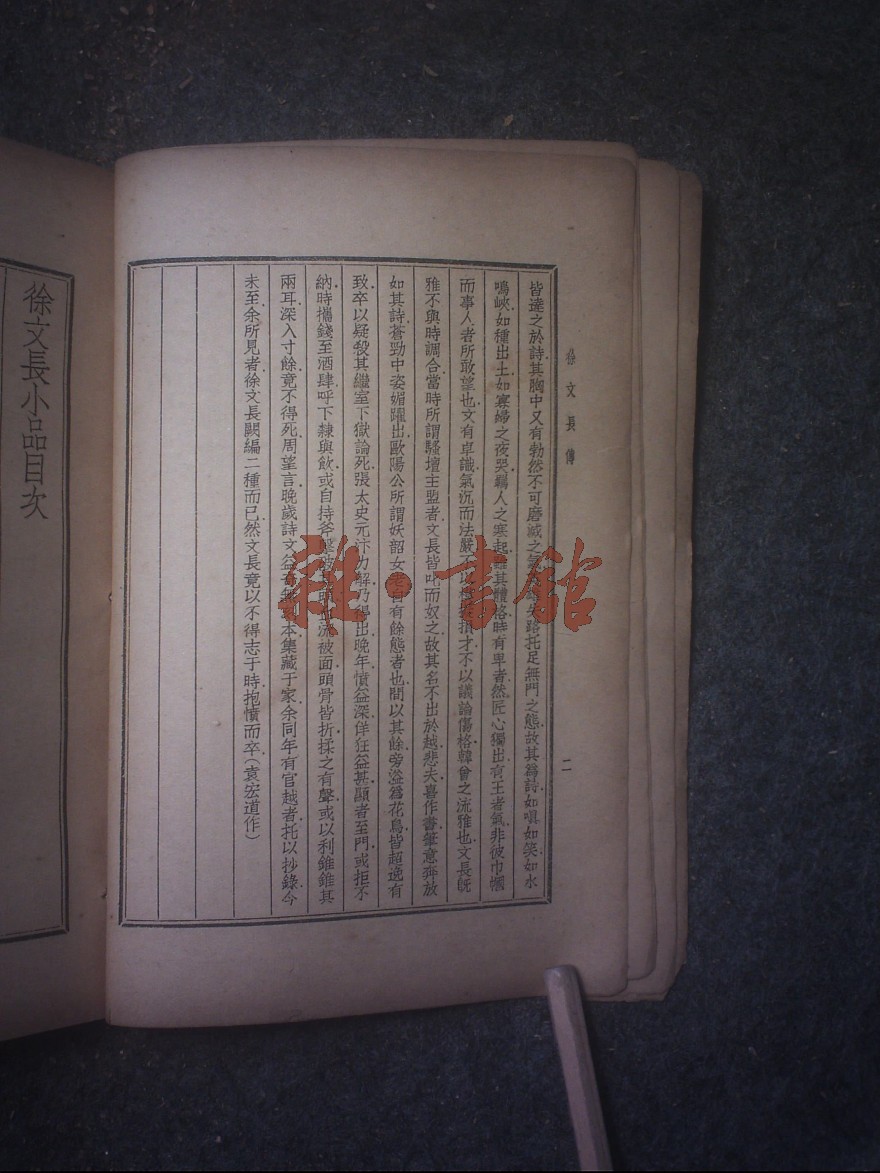 徐文長傳
二
皆達之於詩其胸中又有勃然不可磨滅之氣路托足無門之態故其爲詩如嗔如笑如水
鳴峽如種出土如寡婦之夜哭羈人之寒起雖其體格時有卑者然匠心獨出有王者氣非彼巾幗
而事人者所敢望也文有卓識氣沉而法嚴不以損才不以議論傷格韓曾之流雅也文長旣
雅不與時調合當時所謂騷壇主盟者文長皆叱而奴之故其名不出於越悲夫喜作書筆意奔放
如其詩蒼勁中姿媚躍出歐陽公所謂妖韶女老自有餘態者也間以其餘旁溢爲花鳥皆超逸有
致卒以疑殺其繼室下獄論死張太史元汴力解乃得出晚年憤益深佯狂益甚顯者至門或拒不
納時攜錢至酒肆呼下隸與飲或自持斧擊破其頭血流被面頭骨皆折揉之有聲或以利錐錐其
兩耳深入寸餘竟不得死周望言晚歲詩文益奇無刻本集藏于家余同年有官越者托以抄錄今
未至余所見者徐文長闕編二種而已然文長竟以不得志于時抱憤而卒(袁宏道作)
徐文長小品目次
雜·書館